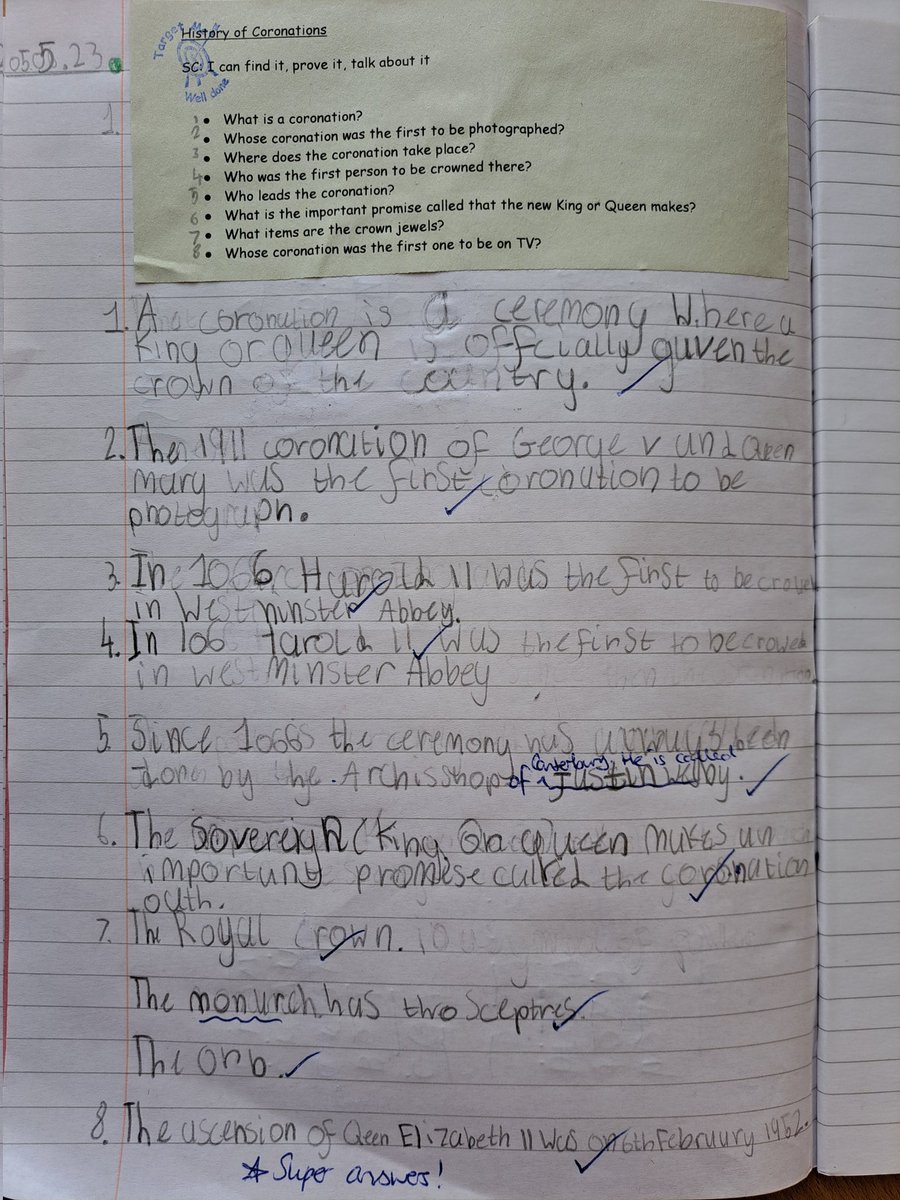 05.05.23
Target Met
Well done
History of Coronations
SC: I can find it, prove it, talk about it
1.
1 • What is a coronation?
2 • Whose coronation was the first to be photographed?
3 • Where does the coronation take place?
4 • Who was the first person to be crowned there?
5 • Who leads the coronation?
6 • What is the important promise called that the new King or Queen makes?
7 • What items are the crown jewels?
8 • Whose coronation was the first one to be on TV?
1. A coronation is a ceremony Where a
King or queen is offcially guven the
crown of the country.
2. The 1911 coronation of George v and Queen
mary was the first coronation to be
photograph.
3. In 1066 Harold II was the first to be
in Westminster Abbey.
4. In 106 Harold II was the first to be croweb
in westMinster Abbey
5. Since 1066 the ceremony has been
done by the Archisshop of Canterbury, He is called Justin Welby.
6. The Sovereign (King Or a Queen makes an
important promise called the coronation
outh.
7. The Royal Crown.
The monurch has two Sceptres.
The orb.
8. The ascension of Qeen Elizabeth II was on 6th February 1952.
* Super answer!